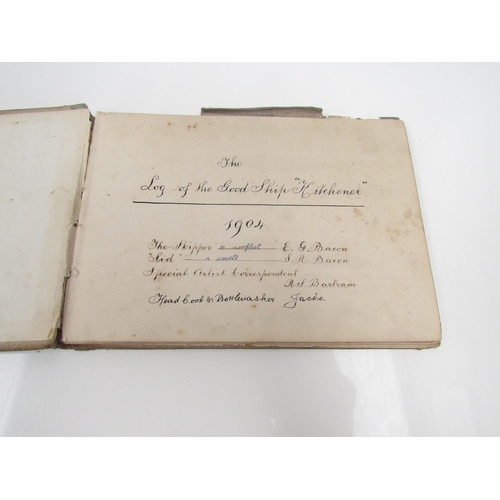 The
Log of the Good Ship "Kitchener"
1904
The Skipper E. G. Bacon
"Kid" S. R. Bacon
Special Artist Correspondent
R. S. Bartram
Head Cook & Bottlewasher Jacko.